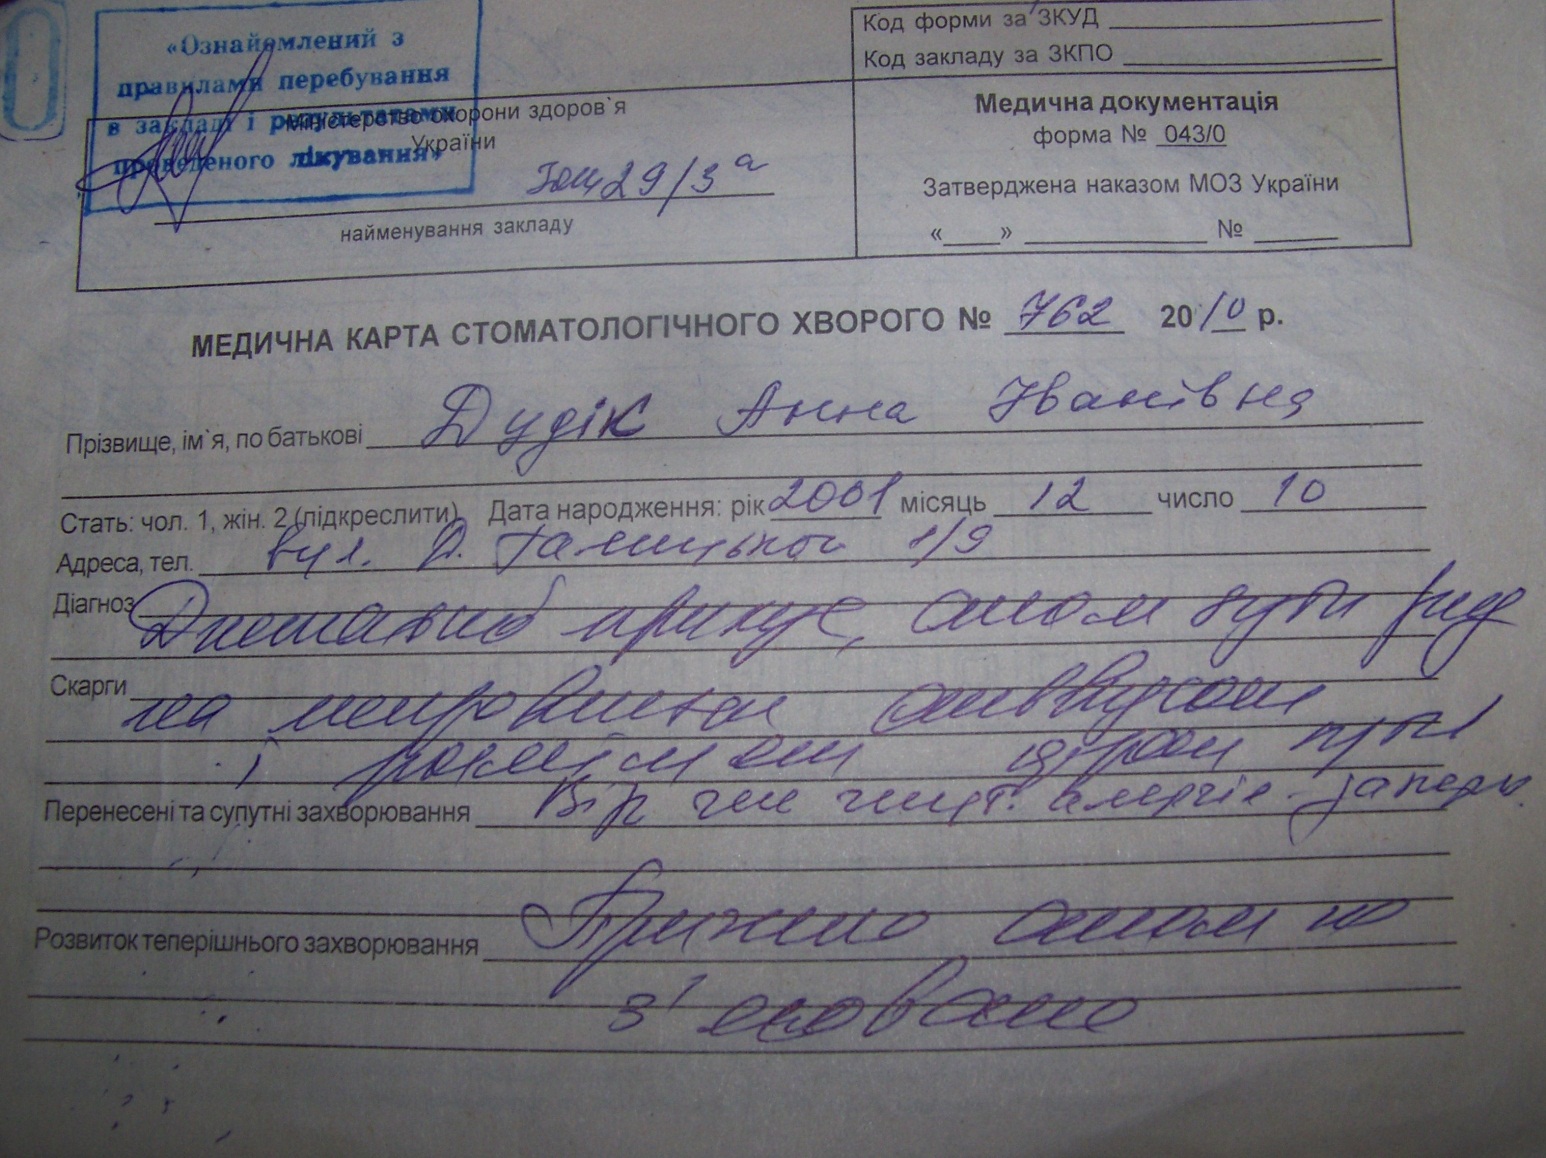 Код форми за ЗКУД
Код закладу за ЗКПО
«Ознайомлений з
правилами перебування
в закладі і результатами
проведеного лікування»
Міністерство охорони здоров`я
України
29/3а
найменування закладу
Медична документація
форма № 043/0
Затверджена наказом МОЗ України
«____» ____________ № ______
МЕДИЧНА КАРТА СТОМАТОЛОГІЧНОГО ХВОРОГО № 762 2010 р.
Прізвище, ім`я, по батькові Дудік Анна Іванівна
Стать: чол. 1, жін. 2 (підкреслити) Дата народження: рік 2001 місяць 12 число 10
Адреса, тел. вул. Д. Галицького 1/9
Діагноз Дистальний прикус, аном зубн ряд
Скарги
на
і
Перенесені та супутні захворювання
Розвиток теперішнього захворювання Причино аном не
з'ясовано